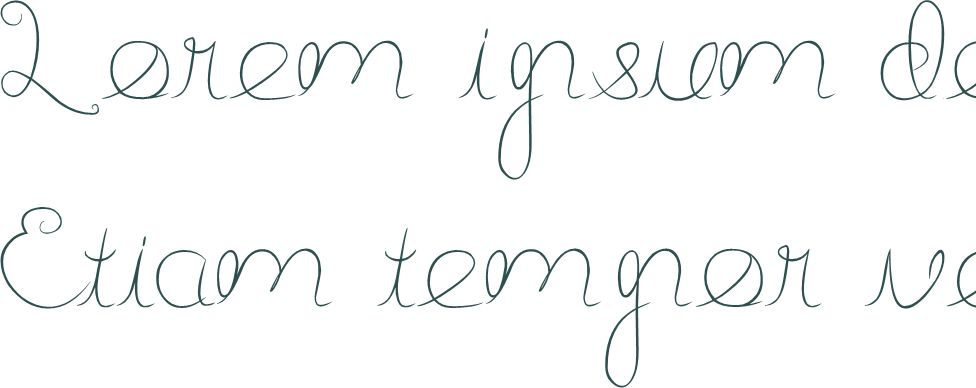 Lorem ipsum do
Etiam temper ve